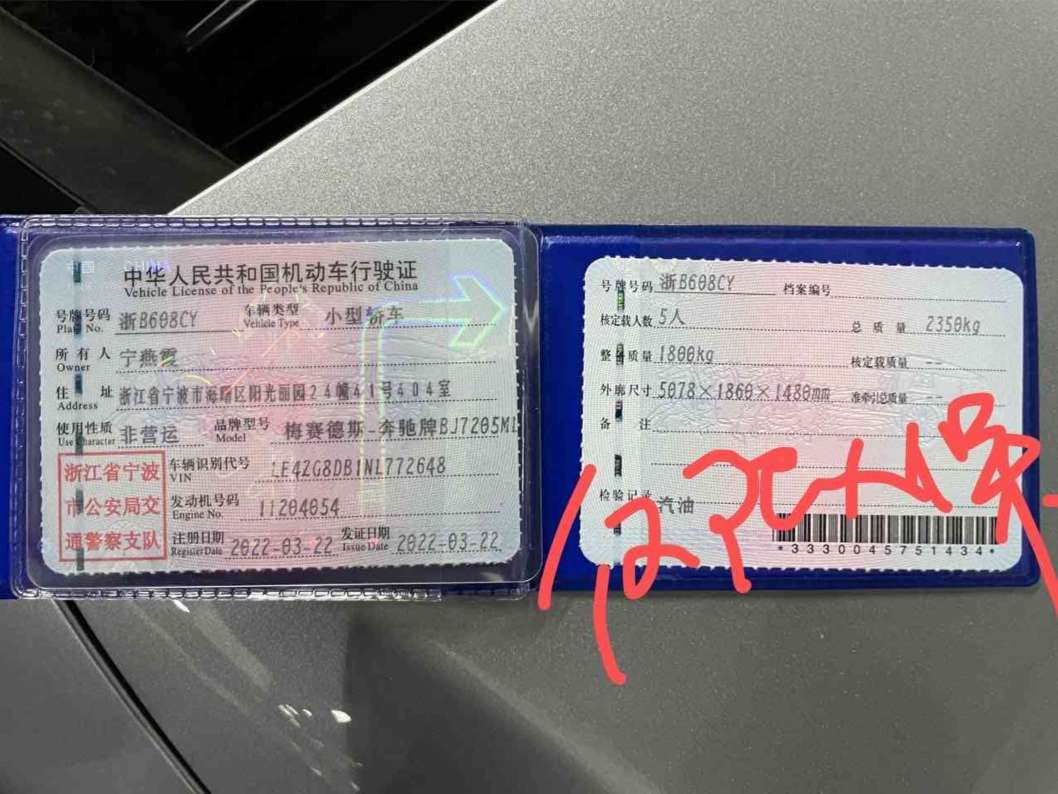 中华人民共和国机动车行驶证
Vehicle License of the People's Republic of China
号牌号码 浙B608CY 车辆类型 小型轿车
Plate No. Vehicle Type
所有人 宁燕霞
Owner
住址 浙江省宁波市海曙区阳光丽园24幢41号404室
Address
使用性质 非营运 品牌型号 梅赛德斯-奔驰牌BJ7205
Use Character Model
浙江省宁波
市公安局交
通警察支队
车辆识别代号 LE4ZG8DB1NL772648
VIN
发动机号码 11204054
Engine No.
注册日期 2022-03-22 发证日期 2022-03-22
Register Date Issue Date
号牌号码 浙B608CY 档案编号
核定载人数 5人 总质量 2350kg
整备质量 1800kg 核定载质量 --
外廓尺寸 5078×1860×1480mm 准牵引总质量 --
备注
检验记录 汽油
*3330045751434*